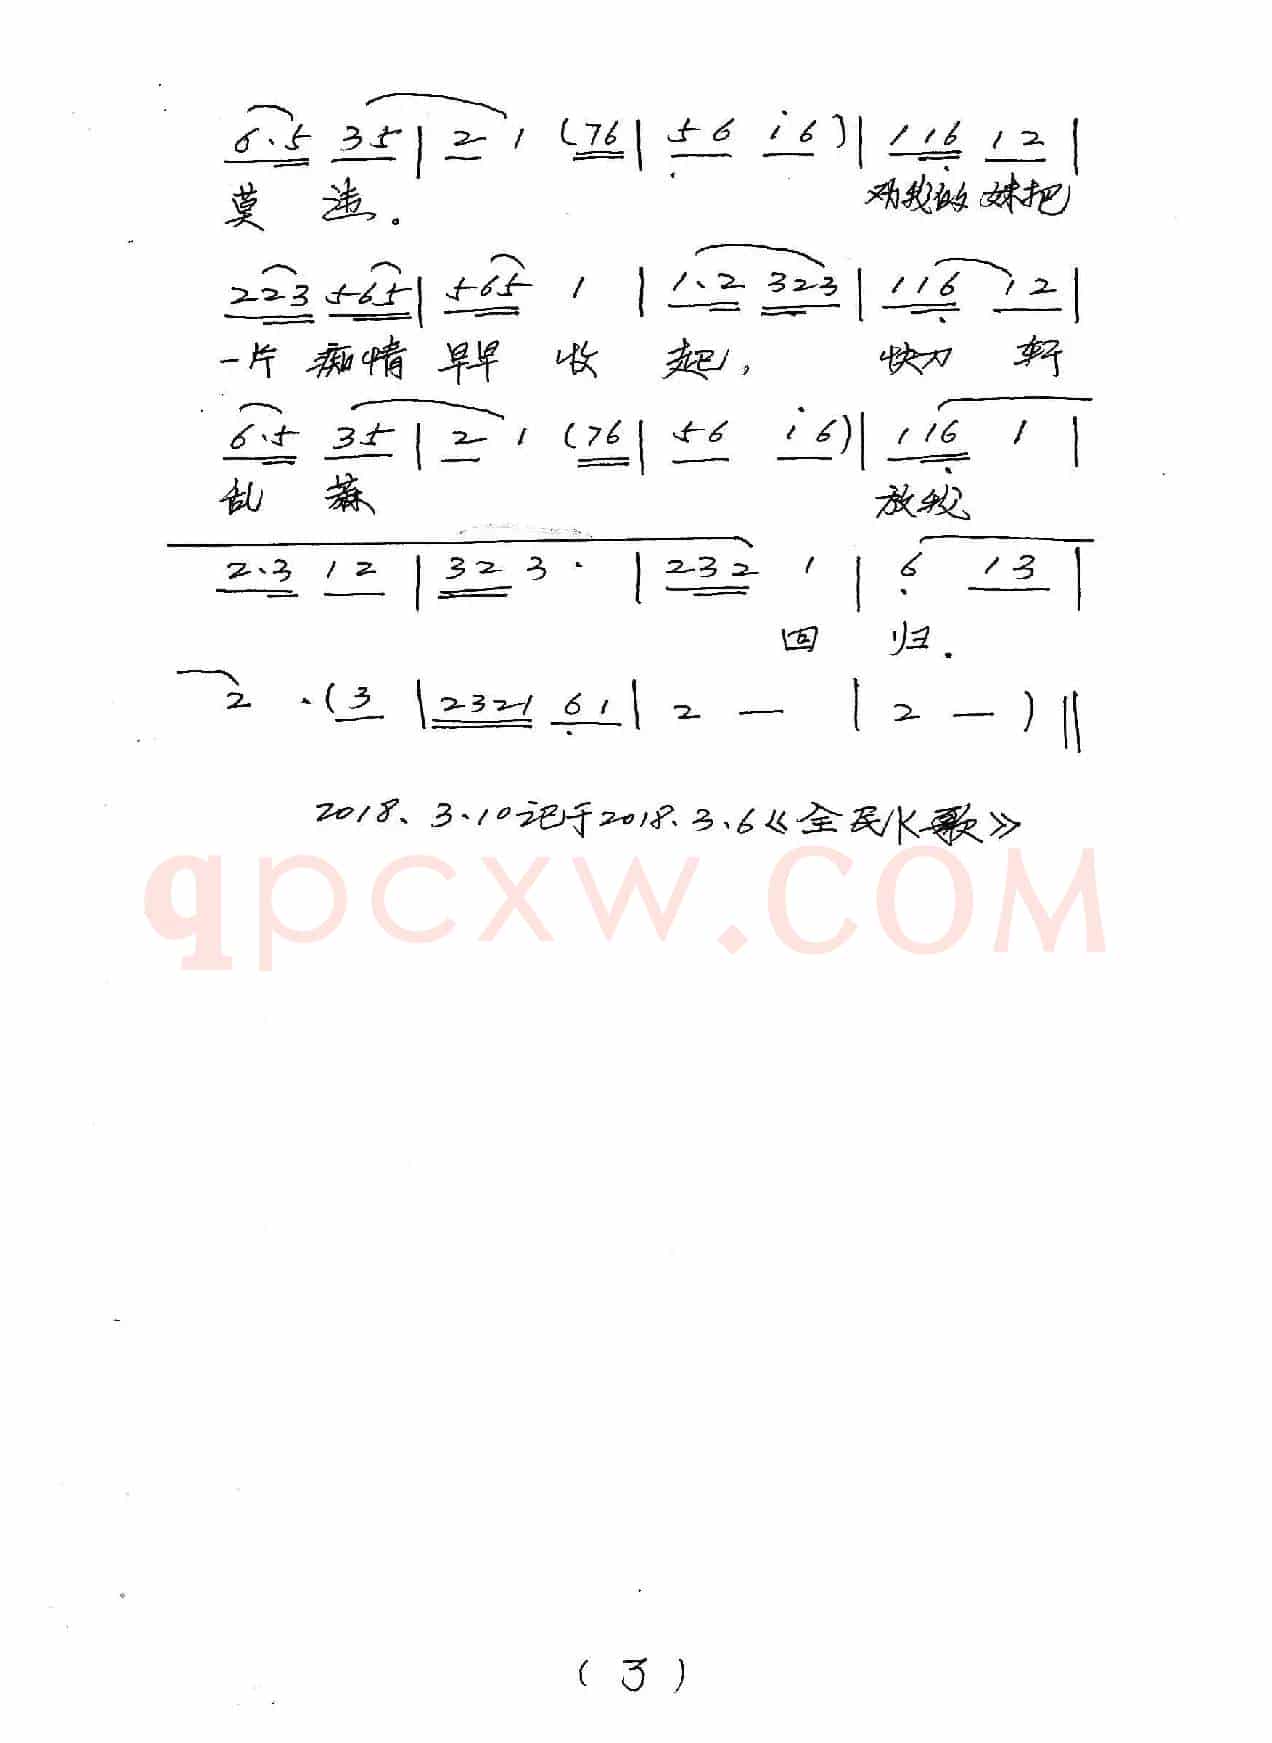 6.5 35 | 2 1 (76 | 56 i6) | 116 12 |
莫 违。 劝我的 妹把
223 565 | 565 1 | 1.2 323 | 116 12 |
一片 痴情 早早 收 起, 快刀 斩
6.5 35 | 2 1 (76 | 56 i6) | 116 1 |
乱 麻 放我
2.3 12 | 32 3 · | 232 1 | 6 13 |
回 归.
2 ·(3 | 2321 61 | 2 — | 2 — ) ||
2018、3.10记于2018.3.6《全民K歌》
qpcxw.COM
(3)